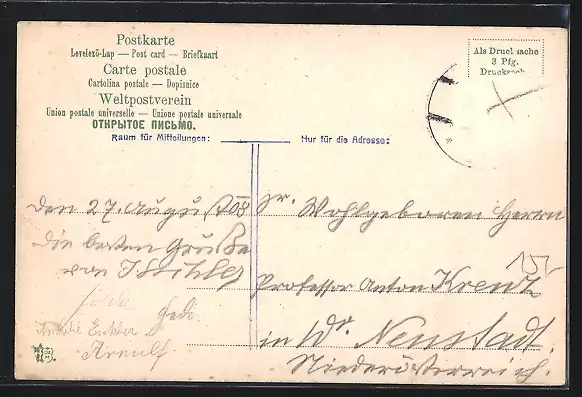 Postkarte
Levelező-Lap — Post card — Briefkaart
Carte postale
Cartolina postale — Dopisnice
Weltpostverein
Union postale universelle — Unione postale universale
ОТКРЫТОЕ ПИСЬМО.
Raum für Mitteilungen:
Nur für die Adresse:
Als Drucksache
3 Pfg.
Drucksache
den 27. August 08
die besten Grüße
von
Sr. Wohlgeboren Herrn
Professor Anton Krenz
in Wr. Neustadt.
Niederösterreich.
Arnulf